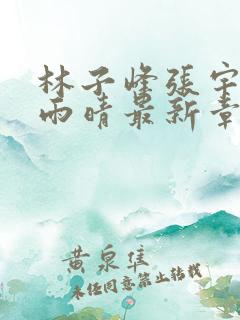 林子峰張宇
雨晴最新章
黄泉隼
未經同意禁止轉載